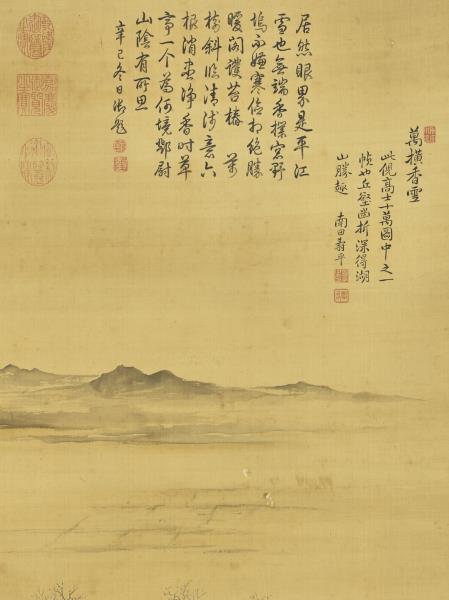 萬橫香雪
此倪高士十萬圖中之一
幀也丘壑曲折深得湖
山勝趣 南田壽平
居然眼界是平江
雪也無端香撲窓野
塢不嫌寒信絕勝
暖閣護苔樁 万
斜臨清淺意六
根消盡淨香時草
亭一个為何境鄧尉
山陰有所思
辛巳冬日御題